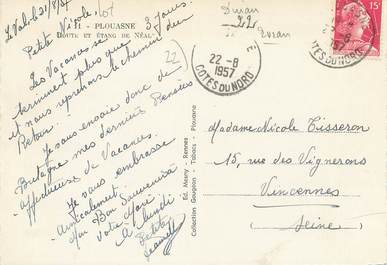 Le Val le 21/8/57
Petite Nicole
22 - PLOUASNE
ROUTE ET ÉTANG DE NÉAL
3 jours.
Les Vacances se
terminent plus que
et nous reprenons le chemin du
Retour!
Je vous envoie donc de
Bretagne mes dernières Pensées
Affectueuses de Vacances.
Je vous embrasse
Amicalement.
Mon Bon Souvenir à
votre Mari
A lundi
Petite
Jeannette
Ed. Mesny - Rennes
Collection Gougeon - Tabacs - Plouasne
Dinan
22
22-8
1957
COTES DU NORD
15F
1957
COTES DU NORD
Madame Nicole Tisseron
15, rue des Vignerons
Vincennes
Seine